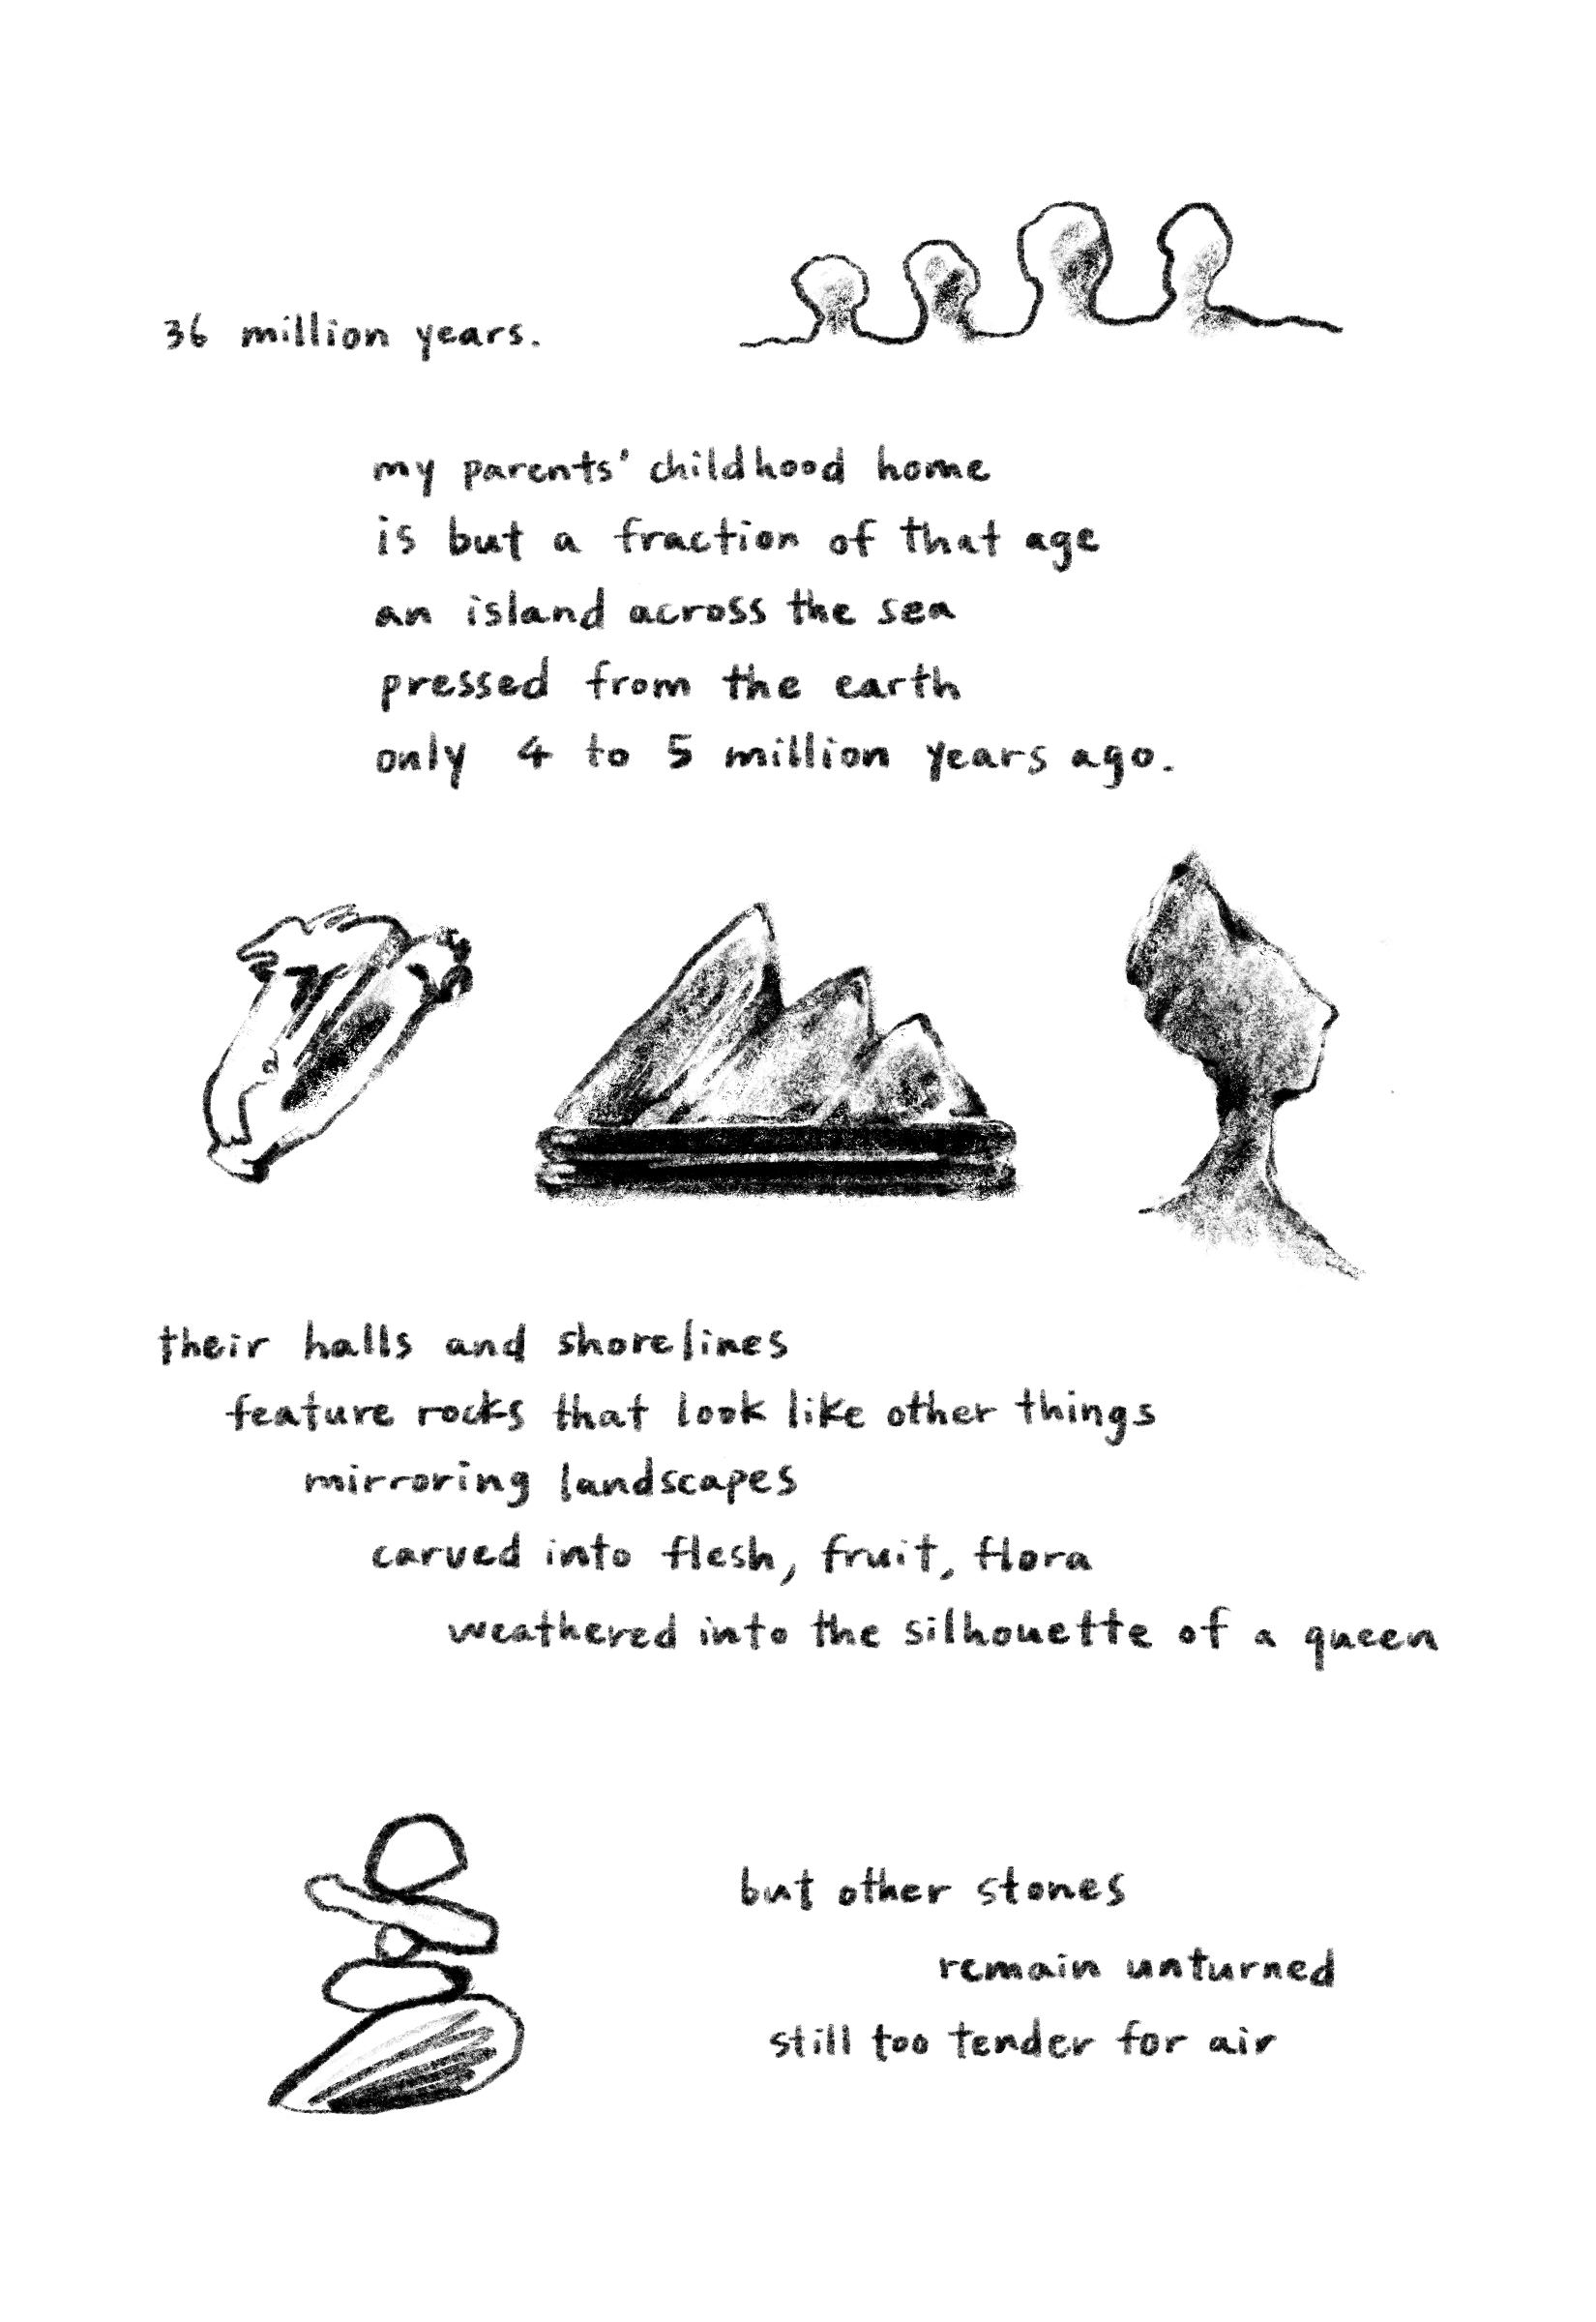 36 million years.
my parents' childhood home
is but a fraction of that age
an island across the sea
pressed from the earth
only 4 to 5 million years ago.
their halls and shorelines
feature rocks that look like other things
mirroring landscapes
carved into flesh, fruit, flora
weathered into the silhouette of a queen
but other stones
remain unturned
still too tender for air